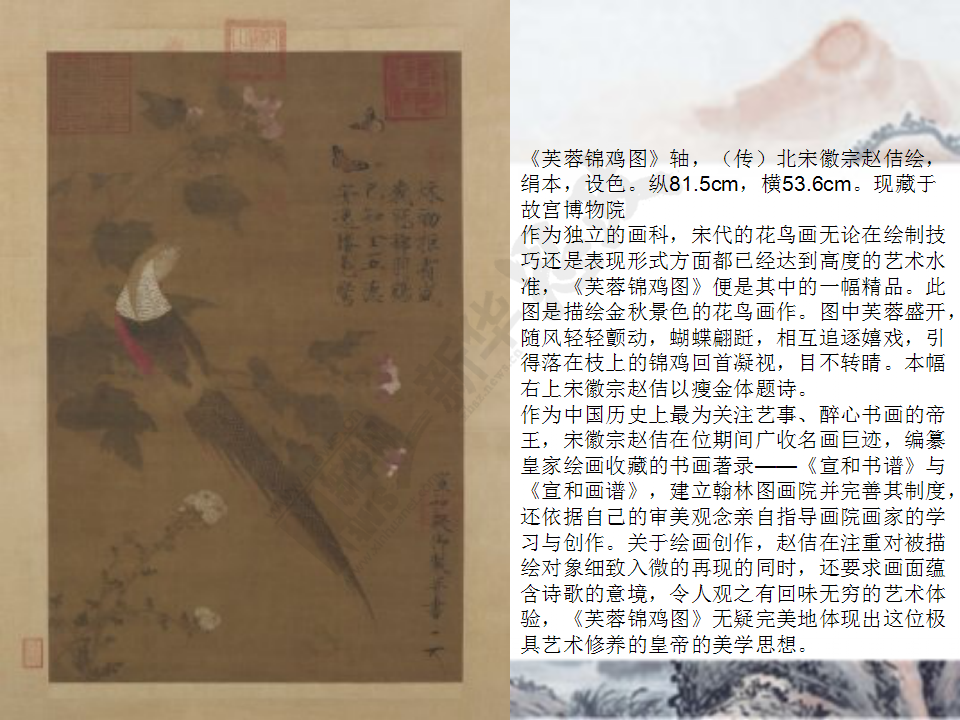 《芙蓉锦鸡图》轴，（传）北宋徽宗赵佶绘，
绢本，设色。纵81.5cm，横53.6cm。现藏于
故宫博物院
作为独立的画科，宋代的花鸟画无论在绘制技
巧还是表现形式方面都已经达到高度的艺术水
准，《芙蓉锦鸡图》便是其中的一幅精品。此
图是描绘金秋景色的花鸟画作。图中芙蓉盛开，
随风轻轻颤动，蝴蝶翩跹，相互追逐嬉戏，引
得落在枝上的锦鸡回首凝视，目不转睛。本幅
右上宋徽宗赵佶以瘦金体题诗。
作为中国历史上最为关注艺事、醉心书画的帝
王，宋徽宗赵佶在位期间广收名画巨迹，编纂
皇家绘画收藏的书画著录——《宣和书谱》与
《宣和画谱》，建立翰林图画院并完善其制度，
还依据自己的审美观念亲自指导画院画家的学
习与创作。关于绘画创作，赵佶在注重对被描
绘对象细致入微的再现的同时，还要求画面蕴
含诗歌的意境，令人观之有回味无穷的艺术体
验，《芙蓉锦鸡图》无疑完美地体现出这位极
具艺术修养的皇帝的美学思想。